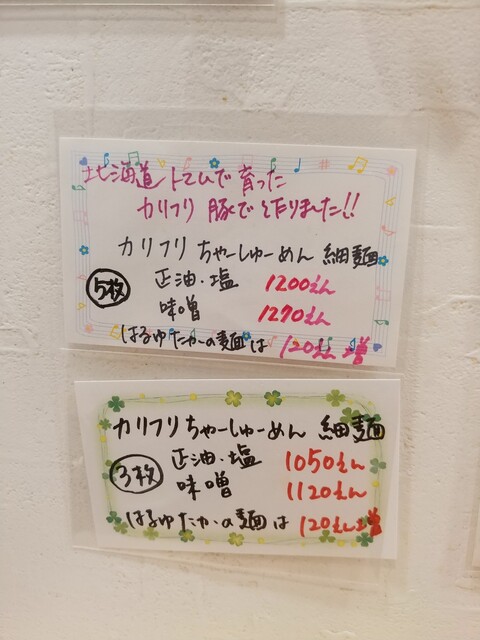 北海道 トマムで育った
カリフリ 豚で作りました!!
カリフリ ちゃーしゅーめん 細麺
5枚 正油・塩 1200えん
味噌 1270えん
はるゆたかの麺は 120えん増
カリフリ ちゃーしゅーめん 細麺
3枚 正油・塩 1050えん
味噌 1120えん
はるゆたかの麺は 120えん増